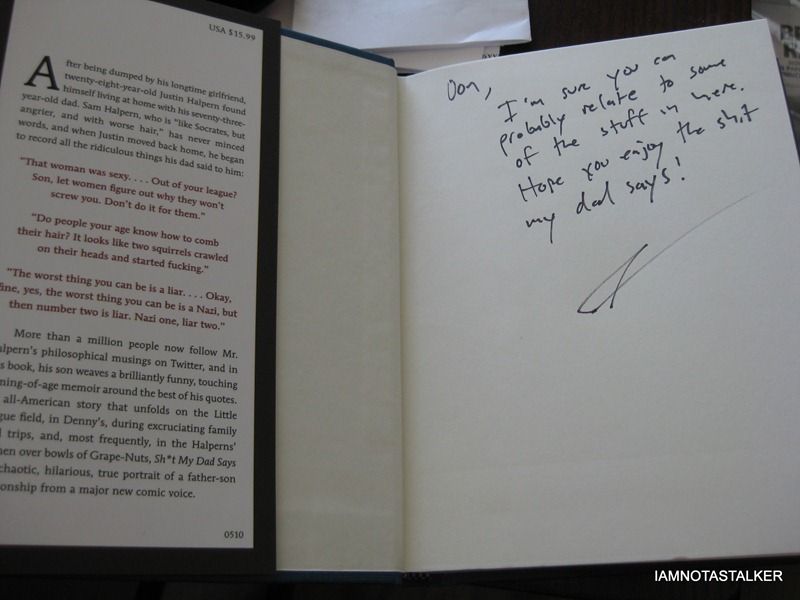 USA $15.99
After being dumped by his longtime girlfriend,
twenty-eight-year-old Justin Halpern found
himself living at home with his seventy-three-
year-old dad. Sam Halpern, who is "like Socrates, but
angrier, and with worse hair," has never minced
words, and when Justin moved back home, he began
to record all the ridiculous things his dad said to him:
"That woman was sexy. . . . Out of your league?
Son, let women figure out why they won't
screw you. Don't do it for them."
"Do people your age know how to comb
their hair? It looks like two squirrels crawled
on their heads and started fucking."
"The worst thing you can be is a liar. . . . Okay,
fine, yes, the worst thing you can be is a Nazi, but
then number two is liar. Nazi one, liar two."
More than a million people now follow Mr.
alpern's philosophical musings on Twitter, and in
s book, his son weaves a brilliantly funny, touching
ming-of-age memoir around the best of his quotes.
all-American story that unfolds on the Little
gue field, in Denny's, during excruciating family
trips, and, most frequently, in the Halperns'
hen over bowls of Grape-Nuts, Sh*t My Dad Says
chaotic, hilarious, true portrait of a father-son
onship from a major new comic voice.
0510
Don,
I'm sure you can
probably relate to some
of the stuff in here.
Hope you enjoy the shit
my dad says!
IAMNOTASTALKER